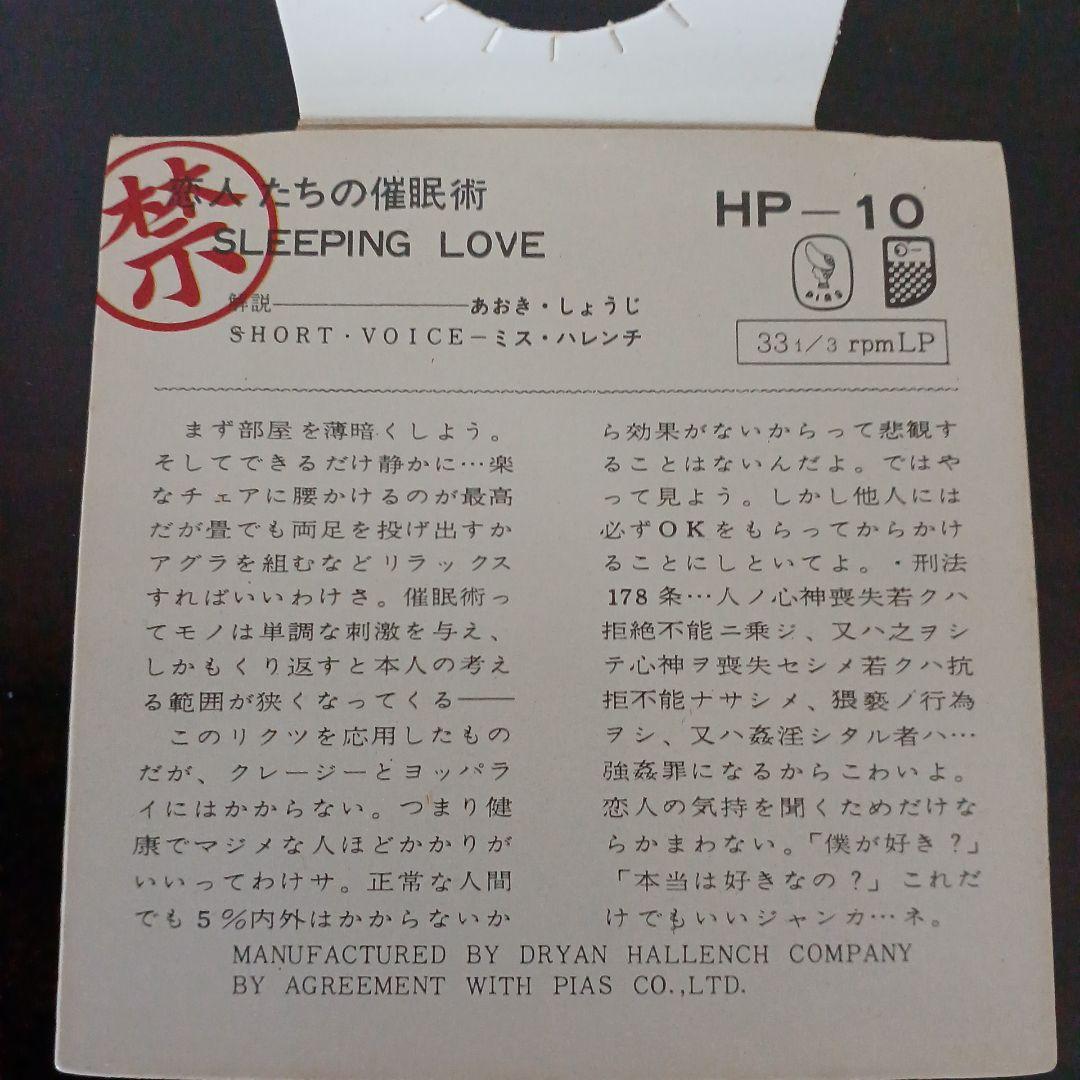 禁
恋人たちの催眠術
SLEEPING LOVE
HP-10
PIAS
解説――――――――あおき・しょうじ
SHORT・VOICE－ミス・ハレンチ
33 1/3 rpm LP
まず部屋を薄暗くしよう。
そしてできるだけ静かに…楽
なチェアに腰かけるのが最高
だが畳でも両足を投げ出すか
アグラを組むなどリラックス
すればいいわけさ。催眠術っ
てモノは単調な刺激を与え、
しかもくり返すと本人の考え
る範囲が狭くなってくる――
このリクツを応用したもの
だが、クレージーとヨッパラ
イにはかからない。つまり健
康でマジメな人ほどかかりが
いいってわけサ。正常な人間
でも5％内外はかからないか
ら効果がないからって悲観す
ることはないんだよ。ではや
って見よう。しかし他人には
必ずOKをもらってからかけ
ることにしといてよ。・刑法
178条…人ノ心神喪失若クハ
拒絶不能ニ乗ジ、又ハ之ヲシ
テ心神ヲ喪失セシメ若クハ抗
拒不能ナサシメ、猥褻ノ行為
ヲシ、又ハ姦淫シタル者ハ…
強姦罪になるからこわいよ。
恋人の気持を聞くためだけな
らかまわない。「僕が好き？」
「本当は好きなの？」これだ
けでもいいジャンカ…ネ。
MANUFACTURED BY DRYAN HALLENCH COMPANY
BY AGREEMENT WITH PIAS CO.,LTD.